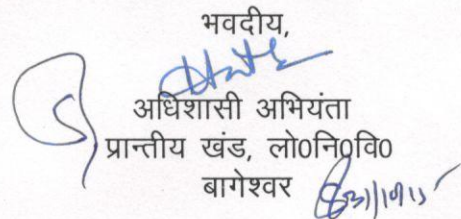 भवदीय,
अधिशासी अभियंता
प्रान्तीय खंड, लो0नि0वि0
बागेश्वर